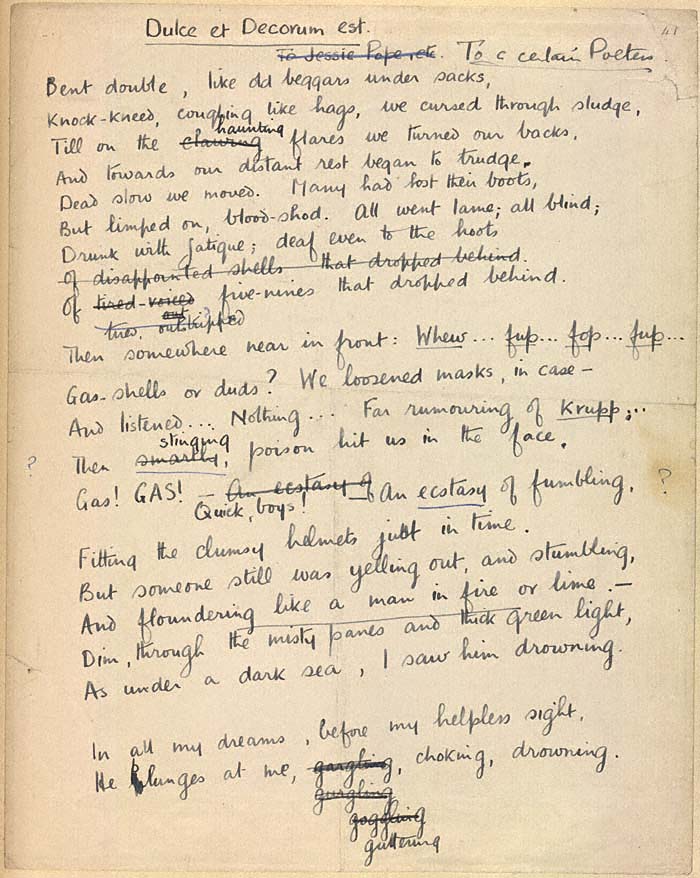 41
Dulce et Decorum est.
To Jessie Pope, etc. To a certain Poetess.
Bent double, like old beggars under sacks,
Knock-kneed, coughing like hags, we cursed through sludge,
haunting
Till on the clawing flares we turned our backs,
And towards our distant rest began to trudge.
Dead slow we moved. Many had lost their boots,
But limped on, blood-shod. All went lame; all blind;
Drunk with fatigue; deaf even to the hoots
Of disappointed shells that dropped behind.
Of tired-voiced five-nines that dropped behind.
out
outstripped
Then somewhere near in front: Whew... fup... fop... fup...
Gas-shells or duds? We loosened masks, in case —
And listened... Nothing... Far rumouring of Krupp;..
stinging
? Then smartly, poison hit us in the face.
Gas! GAS! — An ecstasy of — An ecstasy of fumbling, ?
Quick, boys!
Fitting the clumsy helmets just in time.
But someone still was yelling out, and stumbling,
And floundering like a man in fire or lime. —
Dim, through the misty panes and thick green light,
As under a dark sea, I saw him drowning.
In all my dreams, before my helpless sight,
He plunges at me, gargling, choking, drowning.
gurgling
goggling
guttering